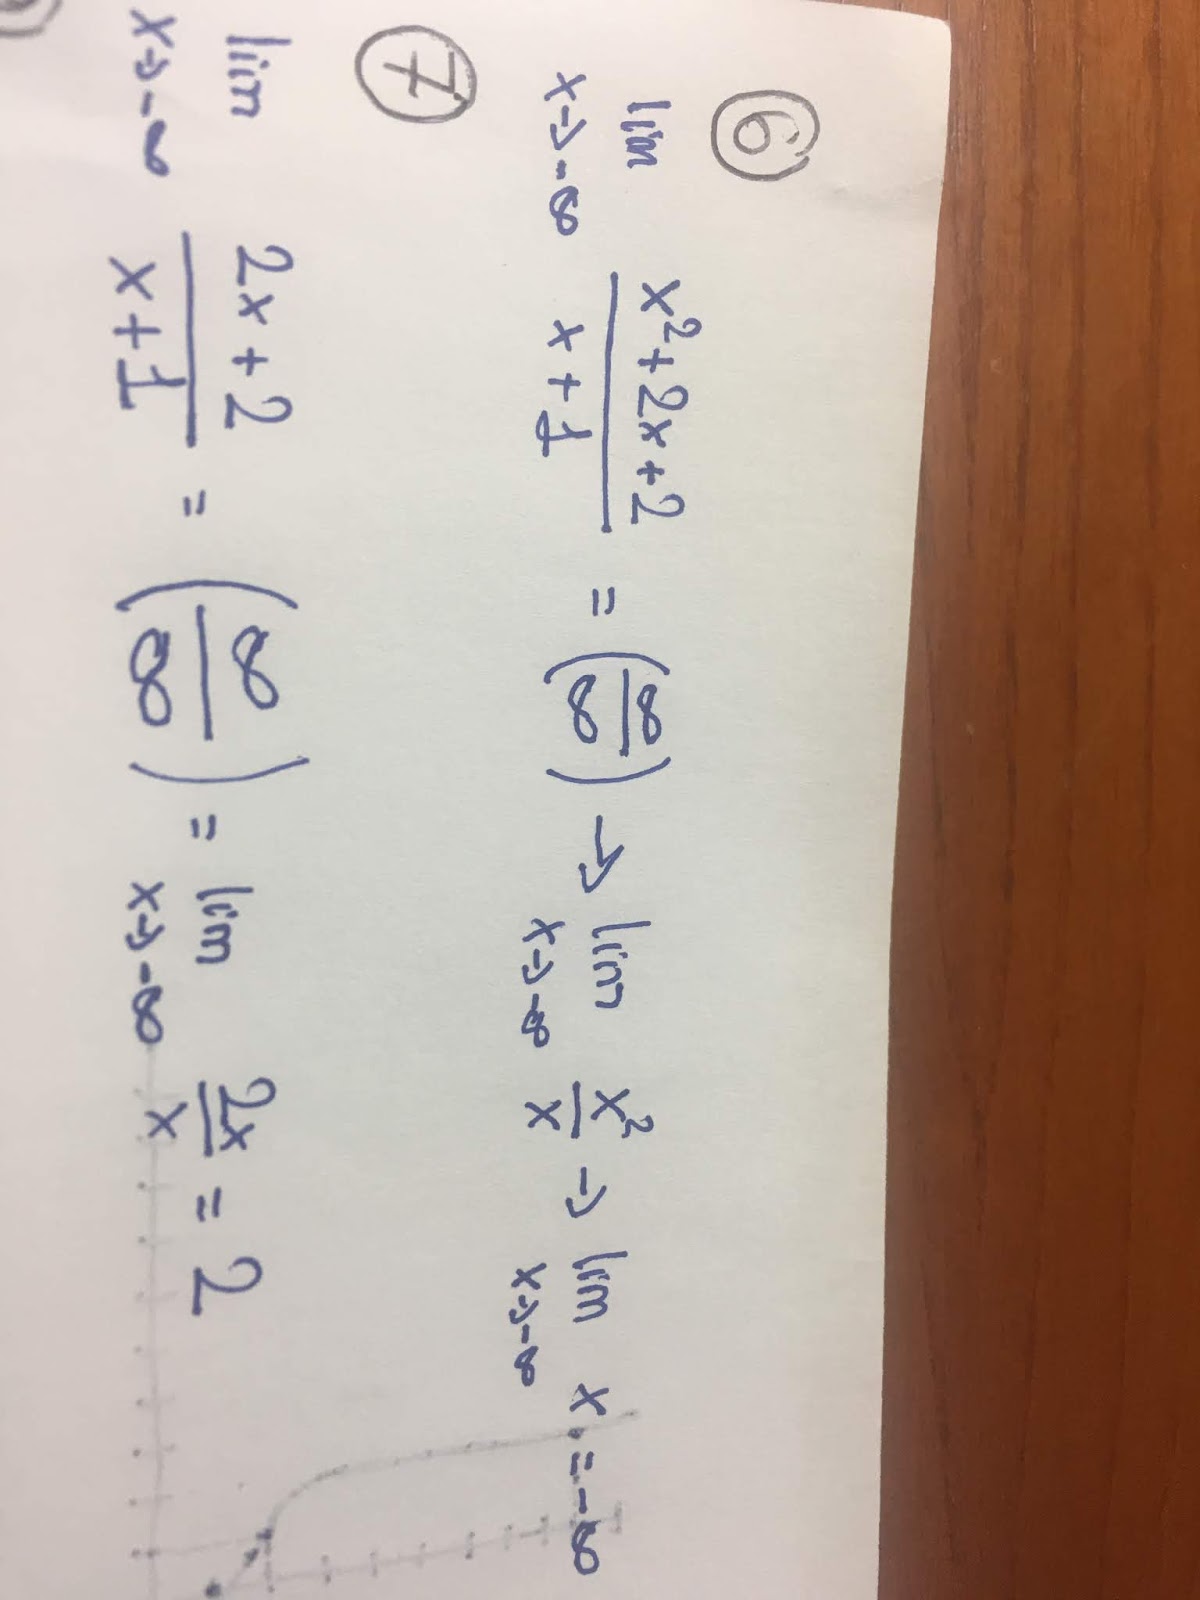 ⑥
lim x→-∞ (x²+2x+2)/(x+1) = (∞/∞) → lim x→-∞ x²/x → lim x→-∞ x = -∞
⑦
lim x→-∞ (2x+2)/(x+1) = (∞/∞) = lim x→-∞ 2x/x = 2